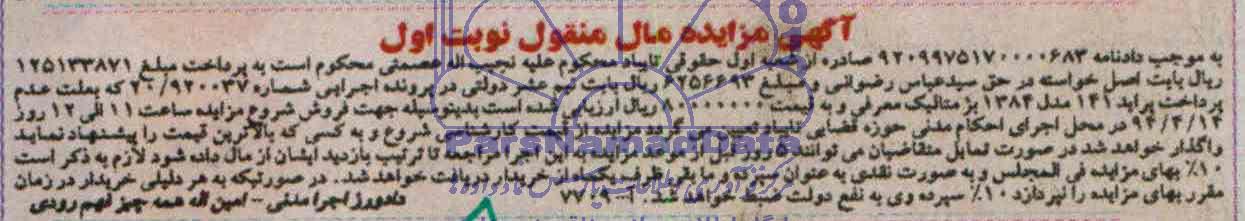 آگهی مزایده مال منقول نوبت اول
به موجب دادنامه ۹۲۰۹۹۷۵۱۷۰۰۰۰۶۸۳ صادره از شعبه اول حقوقی تایباد محکوم علیه نجیب اله عصمتی محکوم است به پرداخت مبلغ ۱۲۵۱۳۳۸۷۱
ریال بابت اصل خواسته در حق سیدعباس رضوانی و مبلغ ۶۲۵۶۶۹۳ ریال بابت نیم عشر دولتی در پرونده اجرایی شماره ۲۰/۹۲۰۰۳۷ که بعلت عدم
پرداخت پراید ۱۴۱ مدل ۱۳۸۴ بژ متالیک معرفی و به قیمت ۸۰۰۰۰۰۰۰ ریال ارزیابی شده است بدینوسیله جهت فروش شروع مزایده ساعت ۱۱ الی ۱۲ روز
۹۴/۴/۱۴ در محل اجرای احکام مدنی حوزه قضایی تایباد تعیین می گردد مزایده از قیمت کارشناسی شروع و به کسی که بالاترین قیمت را پیشنهاد نماید
واگذار خواهد شد در صورت تمایل متقاضیان می توانند ۵ روز قبل از موعد مزایده به این اجرا مراجعه تا ترتیب بازدید ایشان از مال داده شود لازم به ذکر است
۱۰٪ بهای مزایده فی المجلس و به صورت نقدی به عنوان سپرده و ما بقی ظرف یکماه از خریدار دریافت خواهد شد. در صورتیکه به هر دلیلی خریدار در زمان
مقرر بهای مزایده را نپردازد ۱۰٪ سپرده وی به نفع دولت ضبط خواهد شد.
دادورز اجرا مدنی - امین اله همه چیز فهم رودی
ParsNamadData